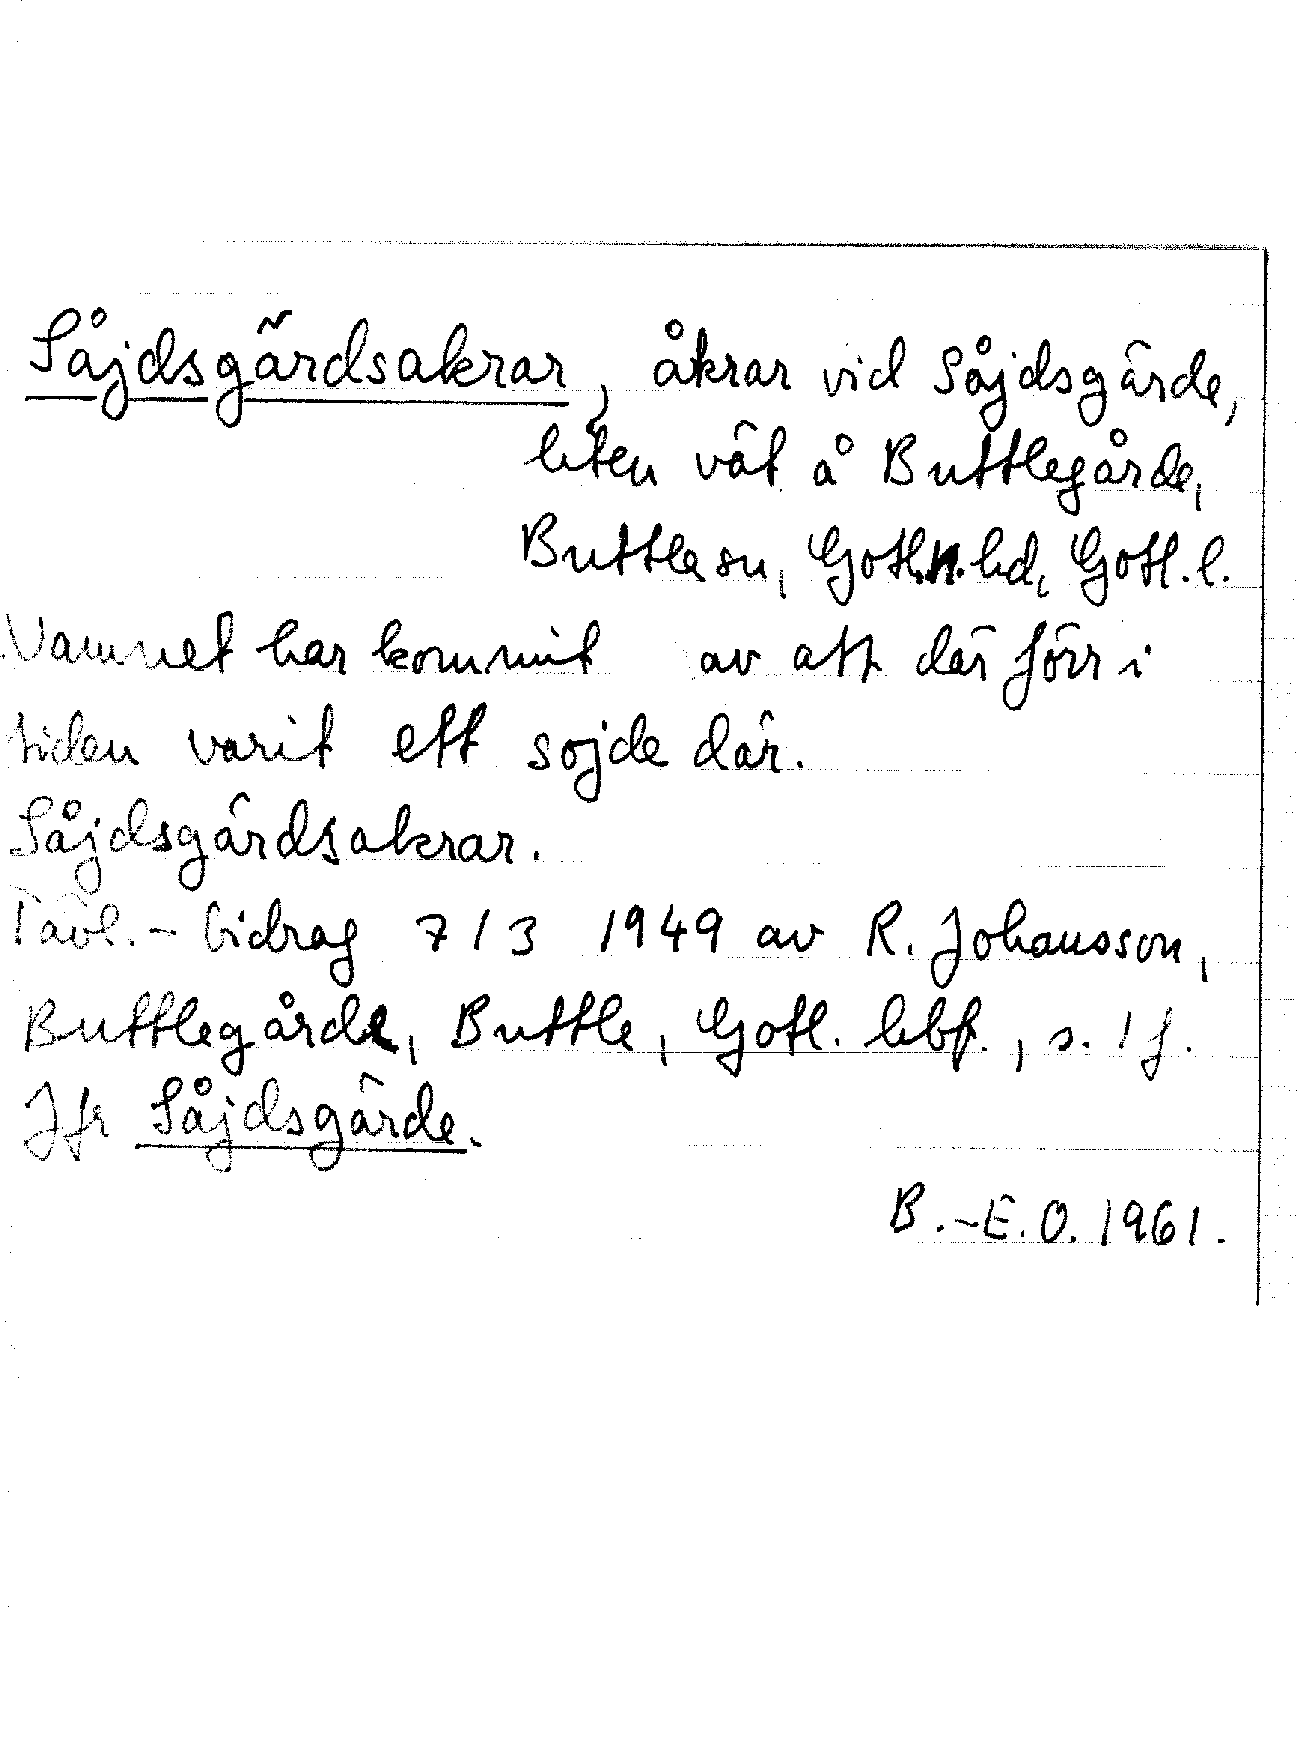 Såjdsgärdsakrar, åkrar vid Såjdsgärde,
liten vät å Buttlegårde,
Buttle sn, Gotl. n. hd, Gotl. l.
Namnet har kommit av att där förr i
tiden varit ett sojde där.
Såjdsgärdsakrar.
Tävl.-bidrag 7/3 1949 av R. Johansson,
Buttlegårde, Buttle, Gotl. lbf., s. 1 f.
Jfr Såjdsgärde.
B.-E. O. 1961.